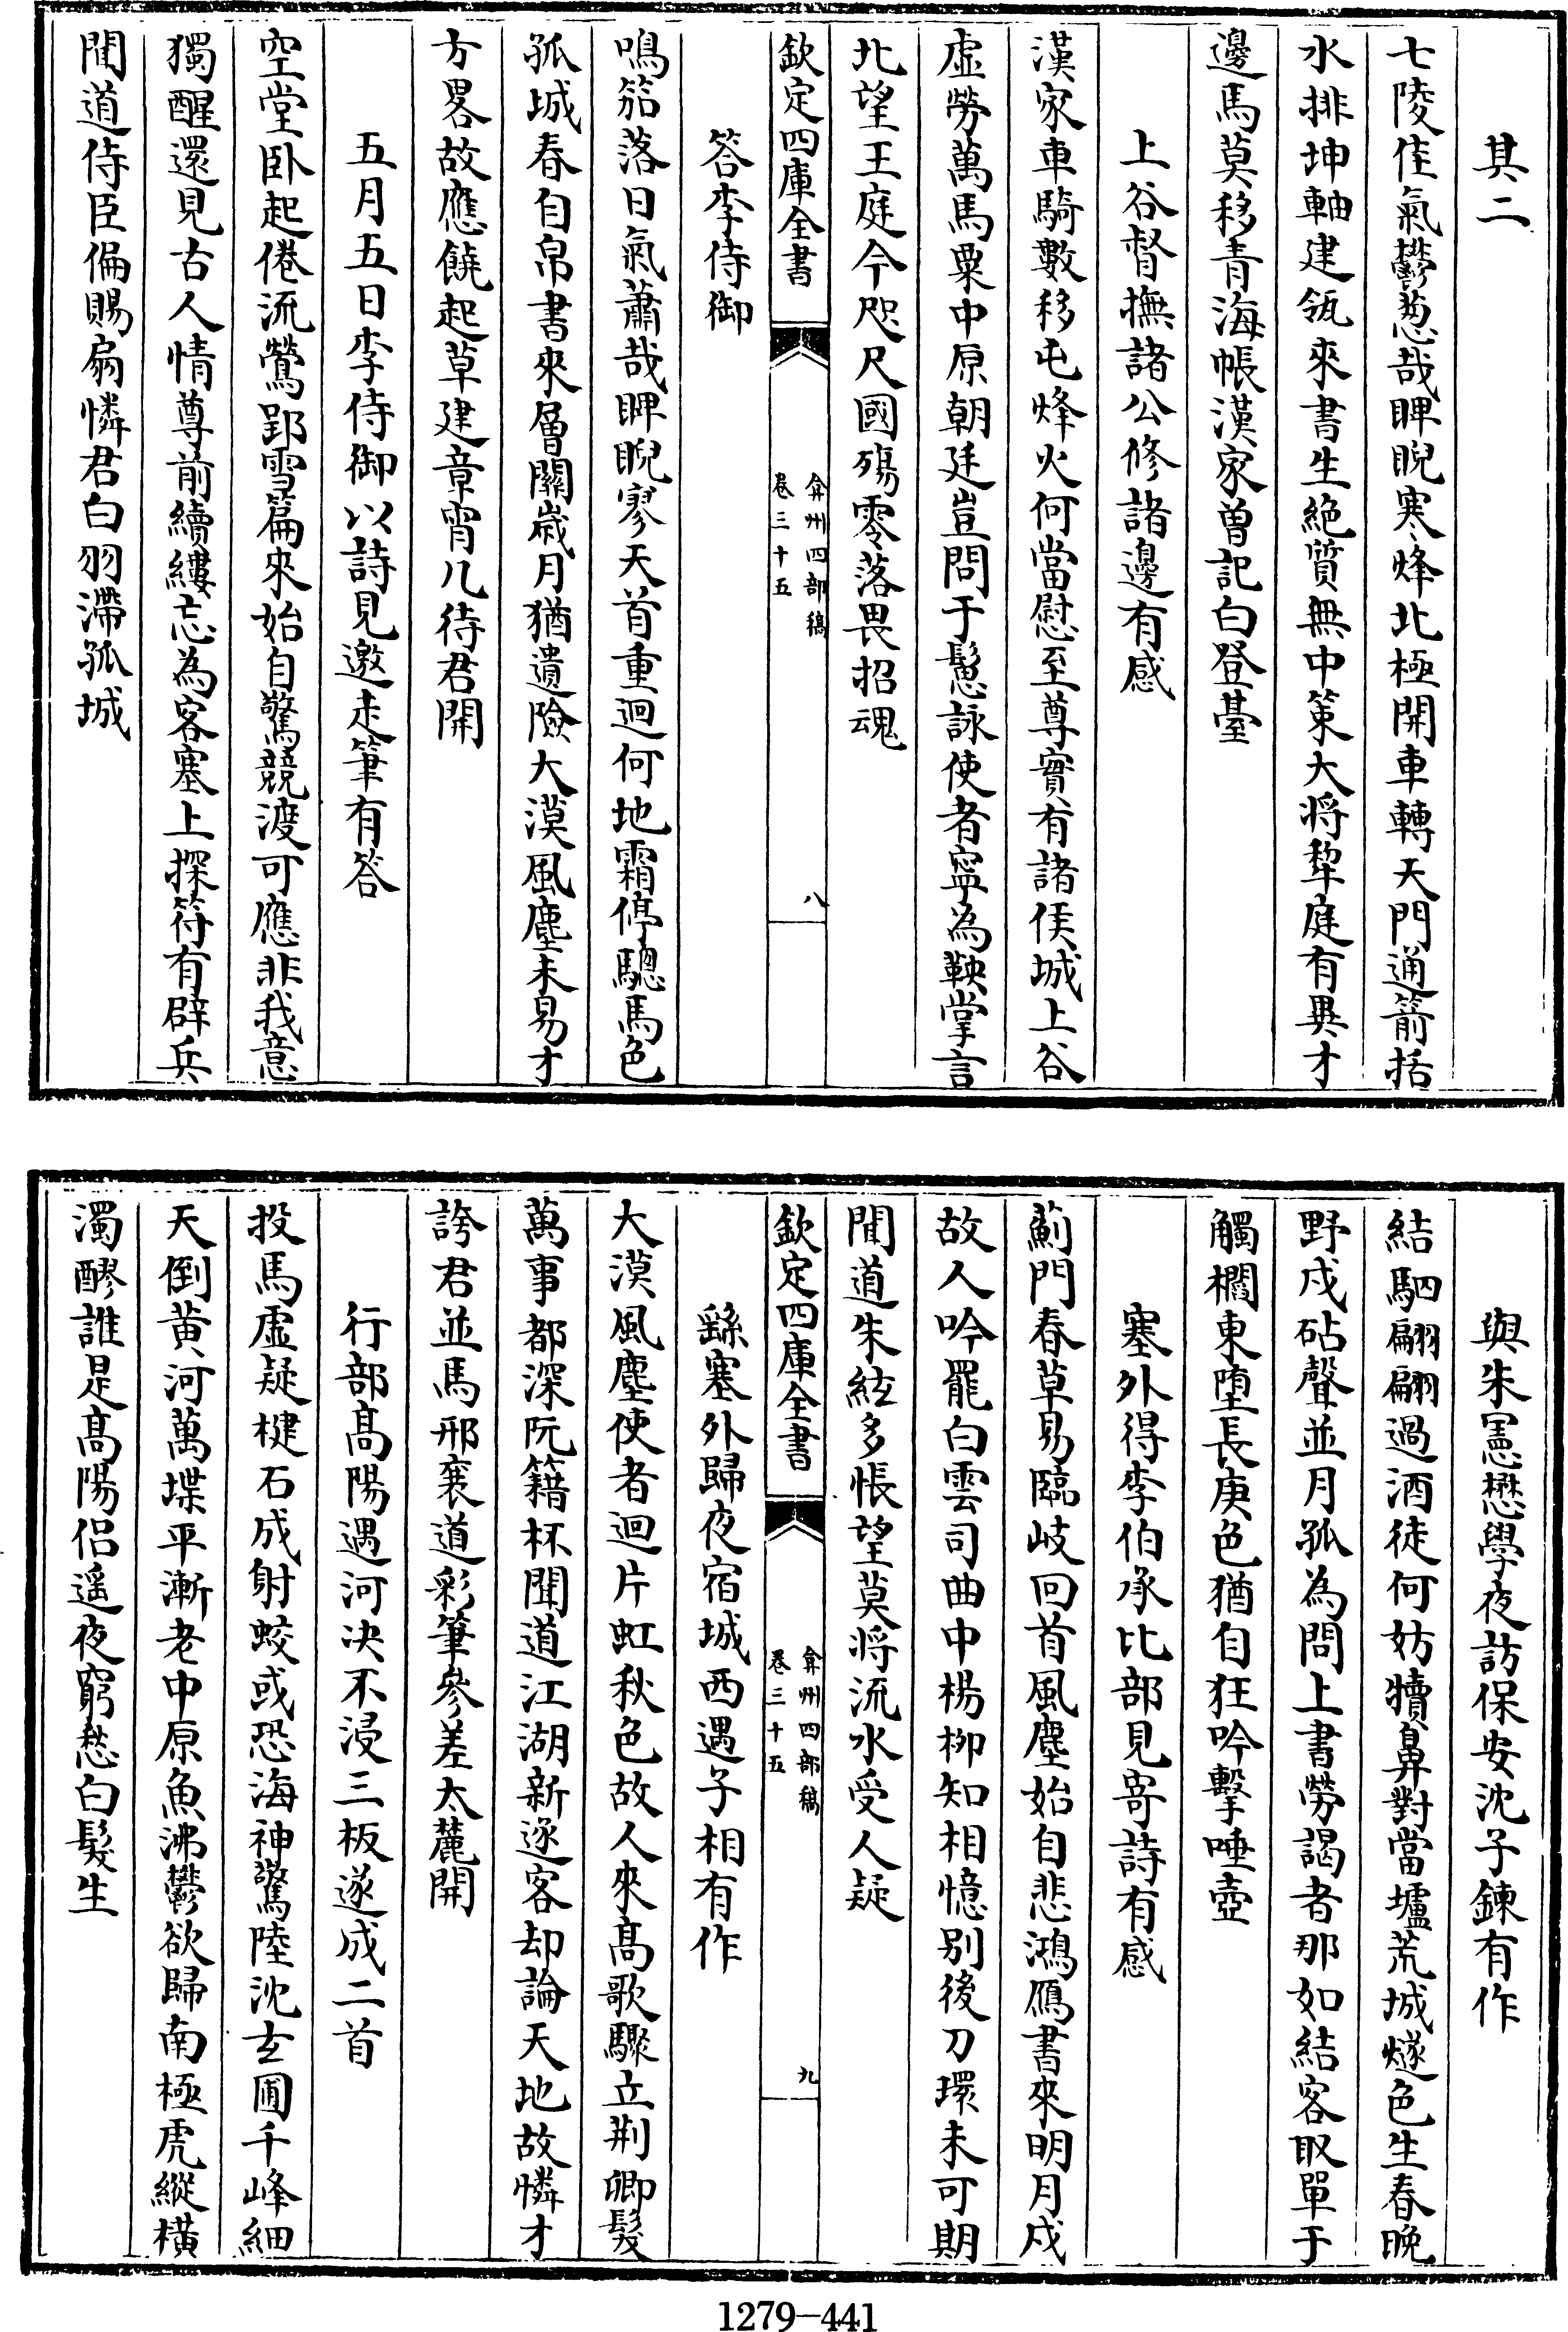 其二
七陵佳氣鬱葱哉睥睨寒烽北極開車轉天門通箭括
水排坤軸建瓴來書生絶質無中策大將犂庭有異才
邊馬莫移青海帳漢家曽記白登臺
上谷督撫諸公修諸邊有感
漢家車騎數移屯烽火何當慰至尊實有諸侯城上谷
虚勞萬馬粟中原朝廷豈問于鬉詠使者寧為鞅掌言
北望王庭今咫尺國殤零落畏招魂
欽定四庫全書
弇州四部稿
卷三十五
八
答李侍御
鳴笳落日氣蕭哉睥睨寥天首重迴何地霜停驄馬色
孤城春自帛書來層關歲月猶遺險大漠風塵未易才
方畧故應饒起草建章宵几待君開
五月五日李侍御以詩見邀走筆有答
空堂卧起倦流鶯郢雪篇來始自驚競渡可應非我意
獨醒還見古人情尊前續縷忘為客塞上探符有辟兵
聞道侍臣偏賜扇憐君白羽滯孤城
與朱憲懋學夜訪保安沈子鍊有作
結駟翩翩過酒徒何妨犢鼻對當壚荒城燧色生春晚
野戍砧聲並月孤為問上書勞謁者那如結客取單于
觸櫩東墮長庚色猶自狂吟擊唾壺
塞外得李伯承比部見寄詩有感
薊門春草易臨岐回首風塵始自悲鴻鴈書來明月戍
故人吟罷白雲司曲中楊柳知相憶别後刀環未可期
聞道朱絃多悵望莫將流水受人疑
欽定四庫全書
弇州四部稿
卷三十五
九
繇塞外歸夜宿城西遇子相有作
大漠風塵使者迴片虹秋色故人來髙歌驟立荆卿髪
萬事都深阮籍杯聞道江湖新逐客却論天地故憐才
誇君並馬邢襄道彩筆參差太麓開
行部髙陽遇河决不浸三板遂成二首
投馬虚疑楗石成射蛟或恐海神驚陸沈玄圃千峰細
天倒黄河萬堞平漸老中原魚沸鬱欲歸南極虎縱橫
濁醪誰是髙陽侣遥夜窮愁白髮生
1279-441